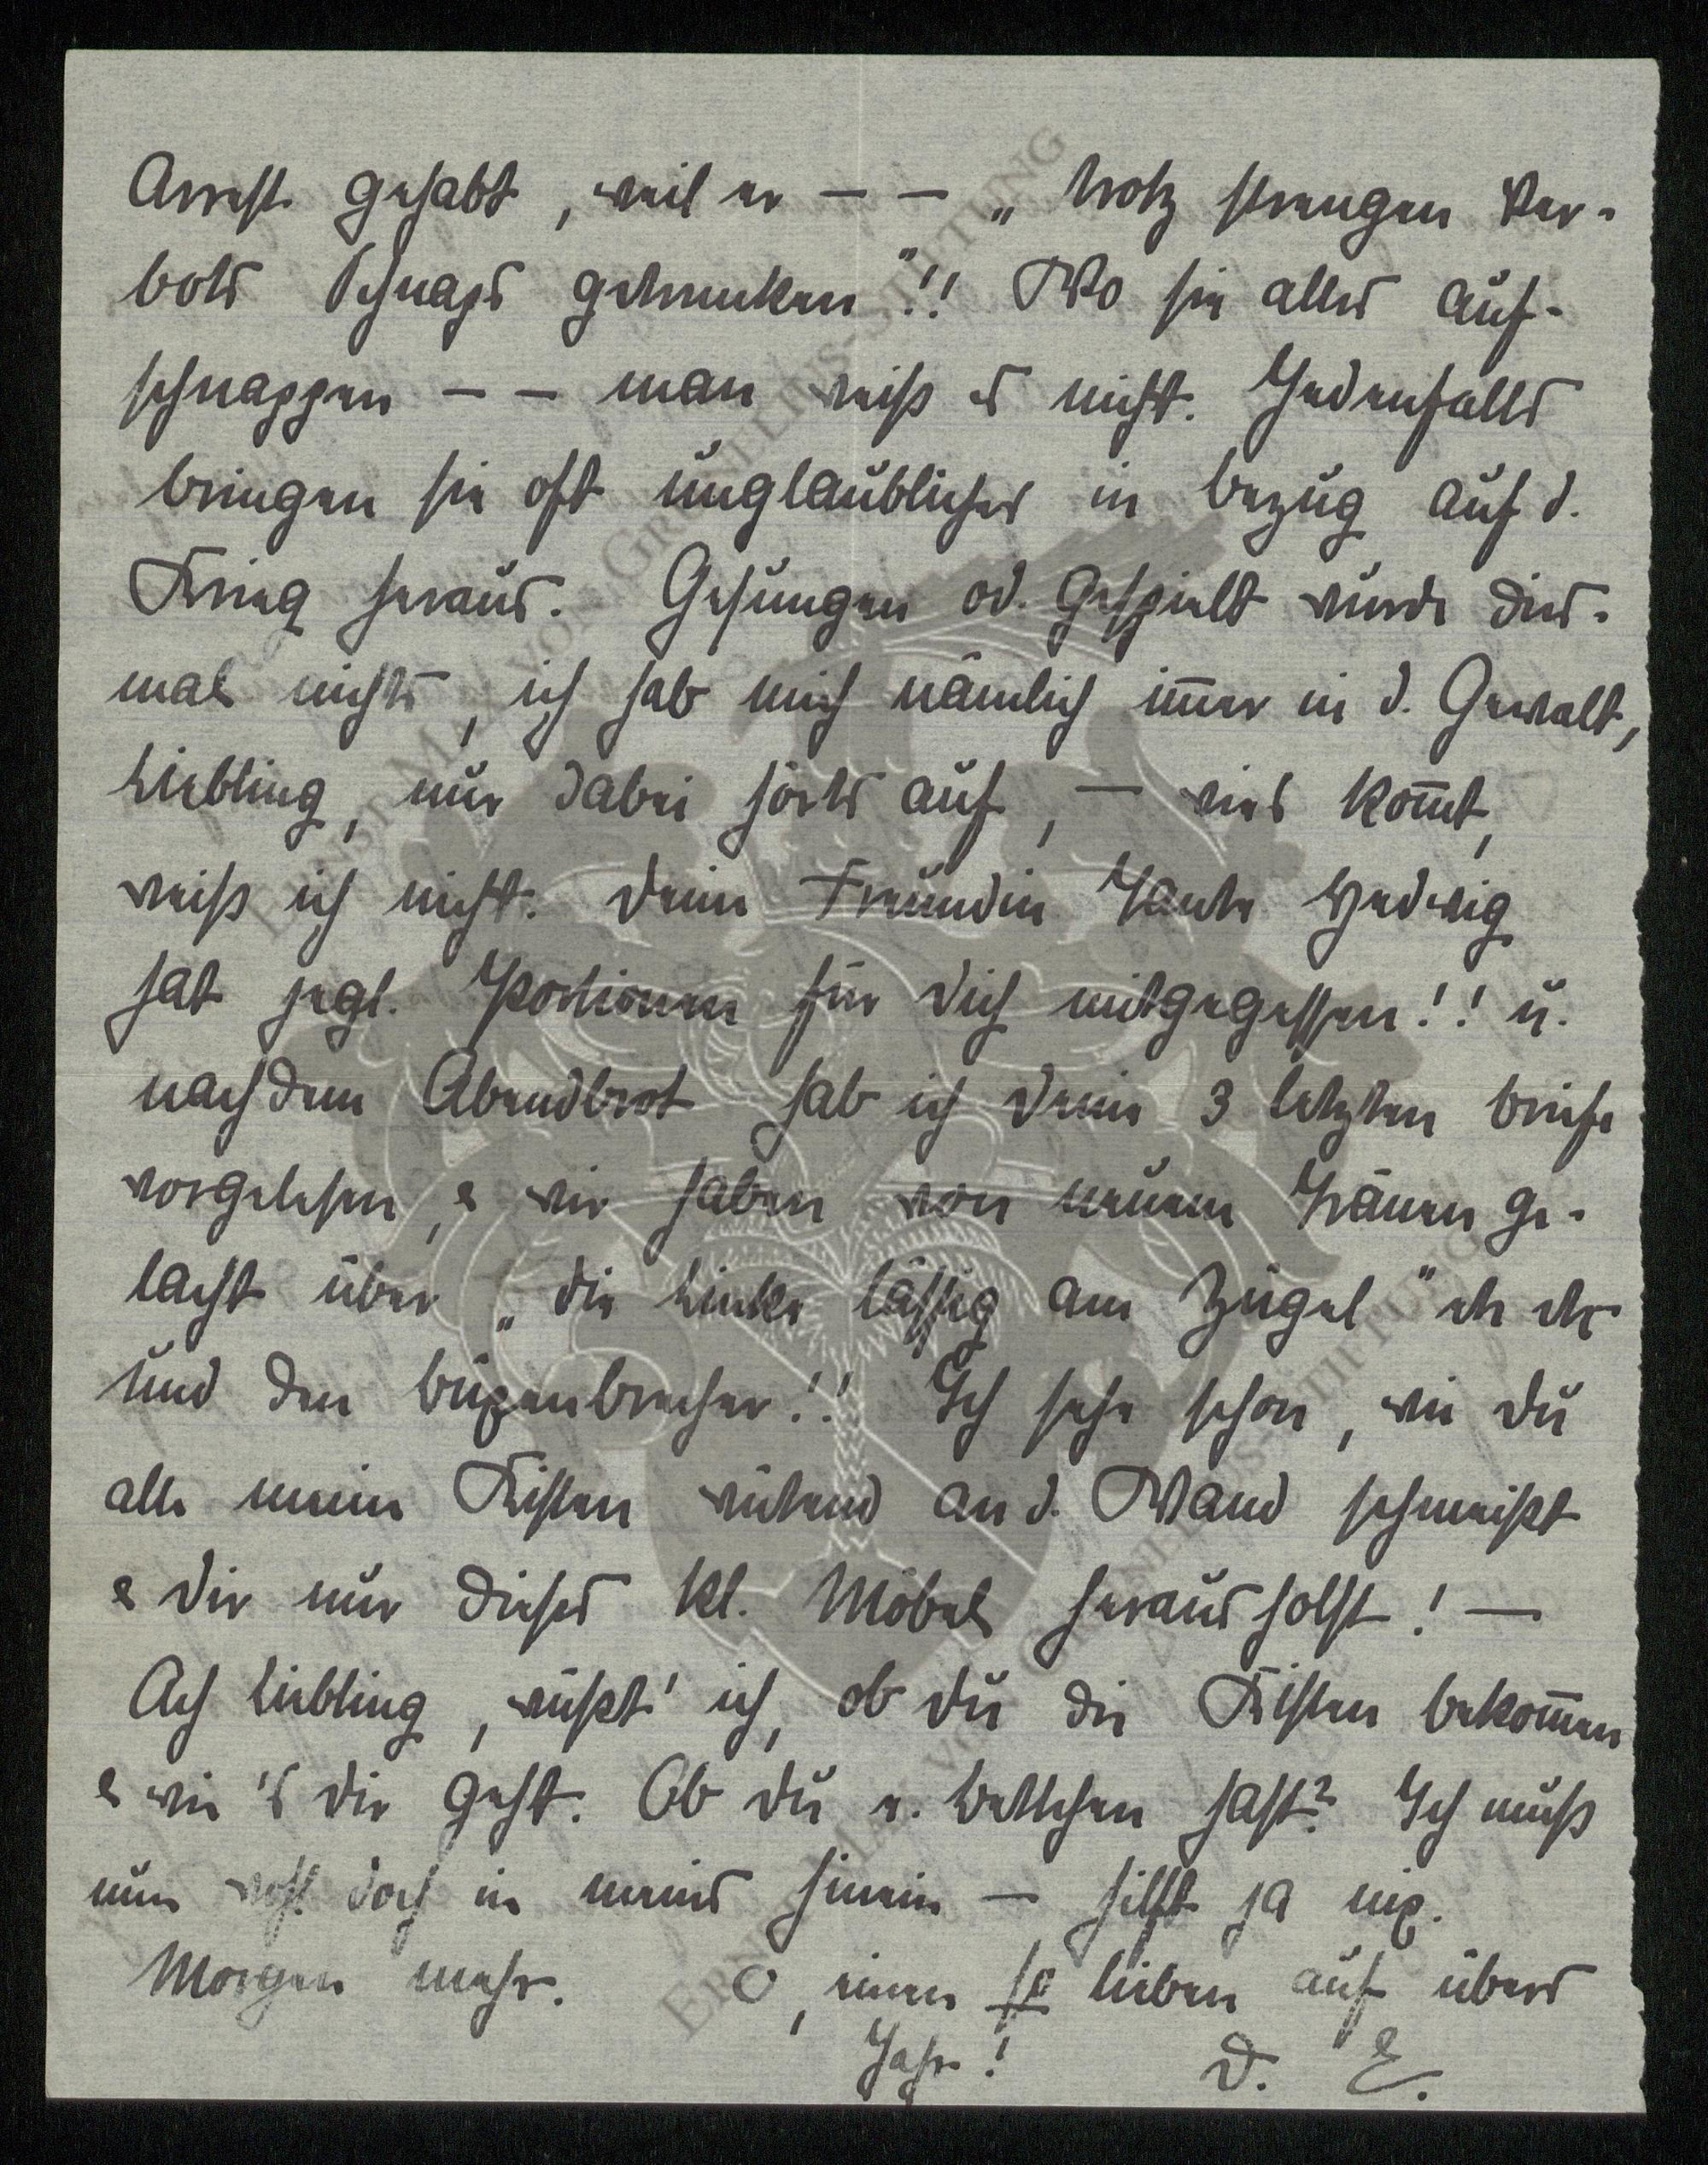 Arrest gehabt, weil er – – „trotz strengen Ver-
bots Schnaps getrunken"!! Wo sie alles auf-
schnappen – – man weiß es nicht. Jedenfalls
bringen sie oft unglaubliches in bezug auf d.
Krieg heraus. Gesungen od. gespielt wurde dies-
mal nichts, ich hab mich nämlich im̅er in d. Gewalt,
Liebling, nur dabei hörts auf, – wies kom̅t,
weiß ich nicht. Deine Freundin Tante Hedwig
hat jegl. Portionen für Dich mitgegessen!! u.
nach dem Abendbrot hab ich Deine 3 letzten briefe
vorgelesen, & wir haben von neuem Tränen ge-
lacht über „die Linke lässig am Zügel" etc etc
und den buxenbrecher!! Ich sehe schon, wie Du
alle meine Kisten wütend an d. Wand schmeißt
& Dir nur dieses kl. Möbel heraus holst! –
Ach Liebling, wüßt' ich, ob Du die Kisten bekom̅en
& wie's Dir geht. Ob Du e. bettchen hast? Ich muß
nun wohl doch in meins hinein – hilft ja nix.
Morgen mehr. O, einen so lieben auf übers
Jahr! D. E.
ERNST-MAX VON GRUNELIUS-STIFTUNG
ERNST-MAX VON GRUNELIUS-STIFTUNG